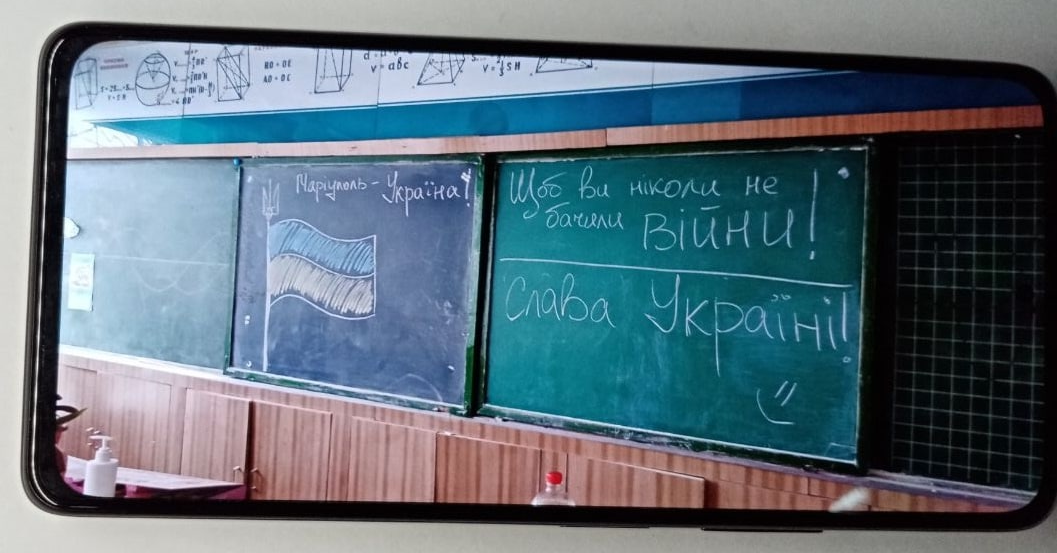 HO = OE
AO = OC
V = abc
V = ⅓ S H
Маріуполь - Україна!
Щоб ви ніколи не
бачили ВІЙНИ!
Слава Україні!